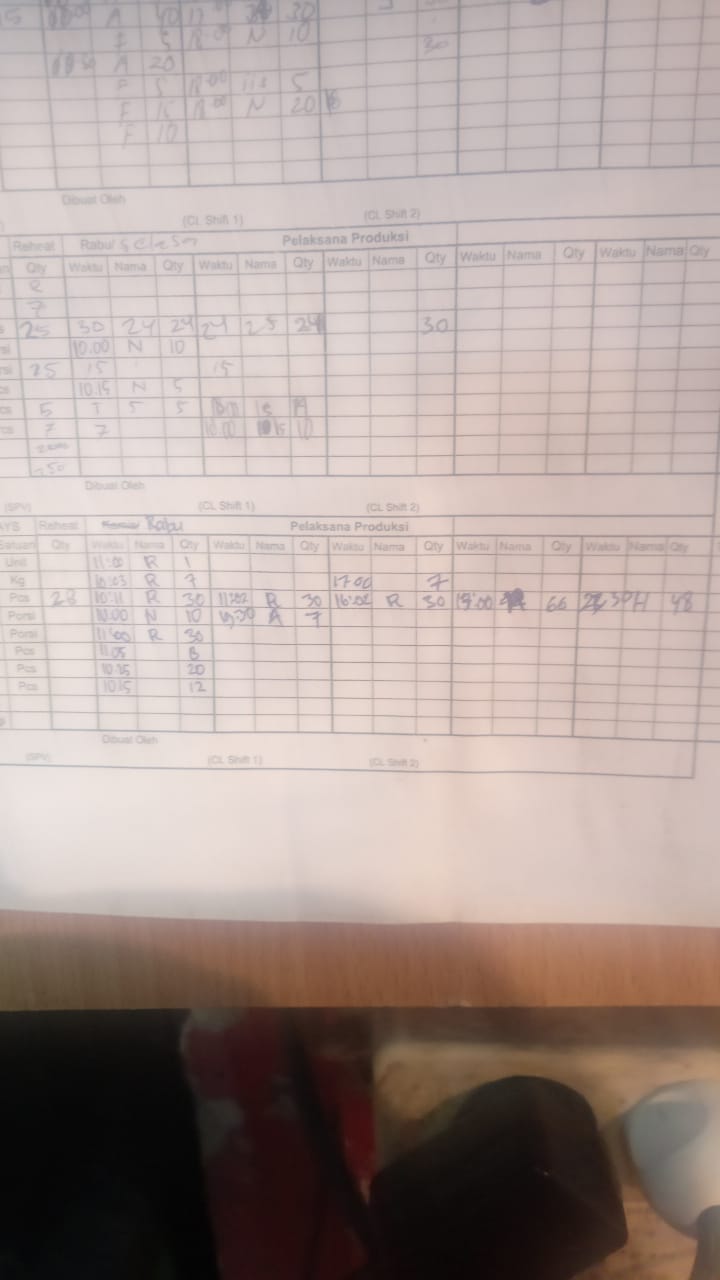 A 40 17 30
5 18.00 N 10
30
A 20
F 5 18.00 iis 5
F 15 18.00 N 20
F 10
Dibuat Oleh
(CL Shift 1) (CL Shift 2)
Reheat Rabu Selasa Pelaksana Produksi
Qty Waktu Nama Qty Waktu Nama Qty Waktu Nama Qty Waktu Nama Qty Waktu Nama Qty
2
7
25 30 24 24 24 25 24 30
10.00 N 10
25 15 15
10.15 N 5
5 5 5
7 7 10.00 15 10
Dibuat Oleh
(SPV) (CL Shift 1) (CL Shift 2)
AYS Reheat Rabu Pelaksana Produksi
Satuan Qty Waktu Nama Qty Waktu Nama Qty Waktu Nama Qty Waktu Nama Qty Waktu Nama Qty
Unit 11:00 R 1
Kg 10:03 R 7 17.00 7
Pcs 28 10:11 R 30 11:02 R 30 16:02 R 30 66 48
Porsi 10.00 N 10 A 7
Porsi 11:00 R 30
Pcs 11.05 8
Pcs 10.25 20
Pcs 10.15 12
Dibuat Oleh
(SPV) (CL Shift 1) (CL Shift 2)